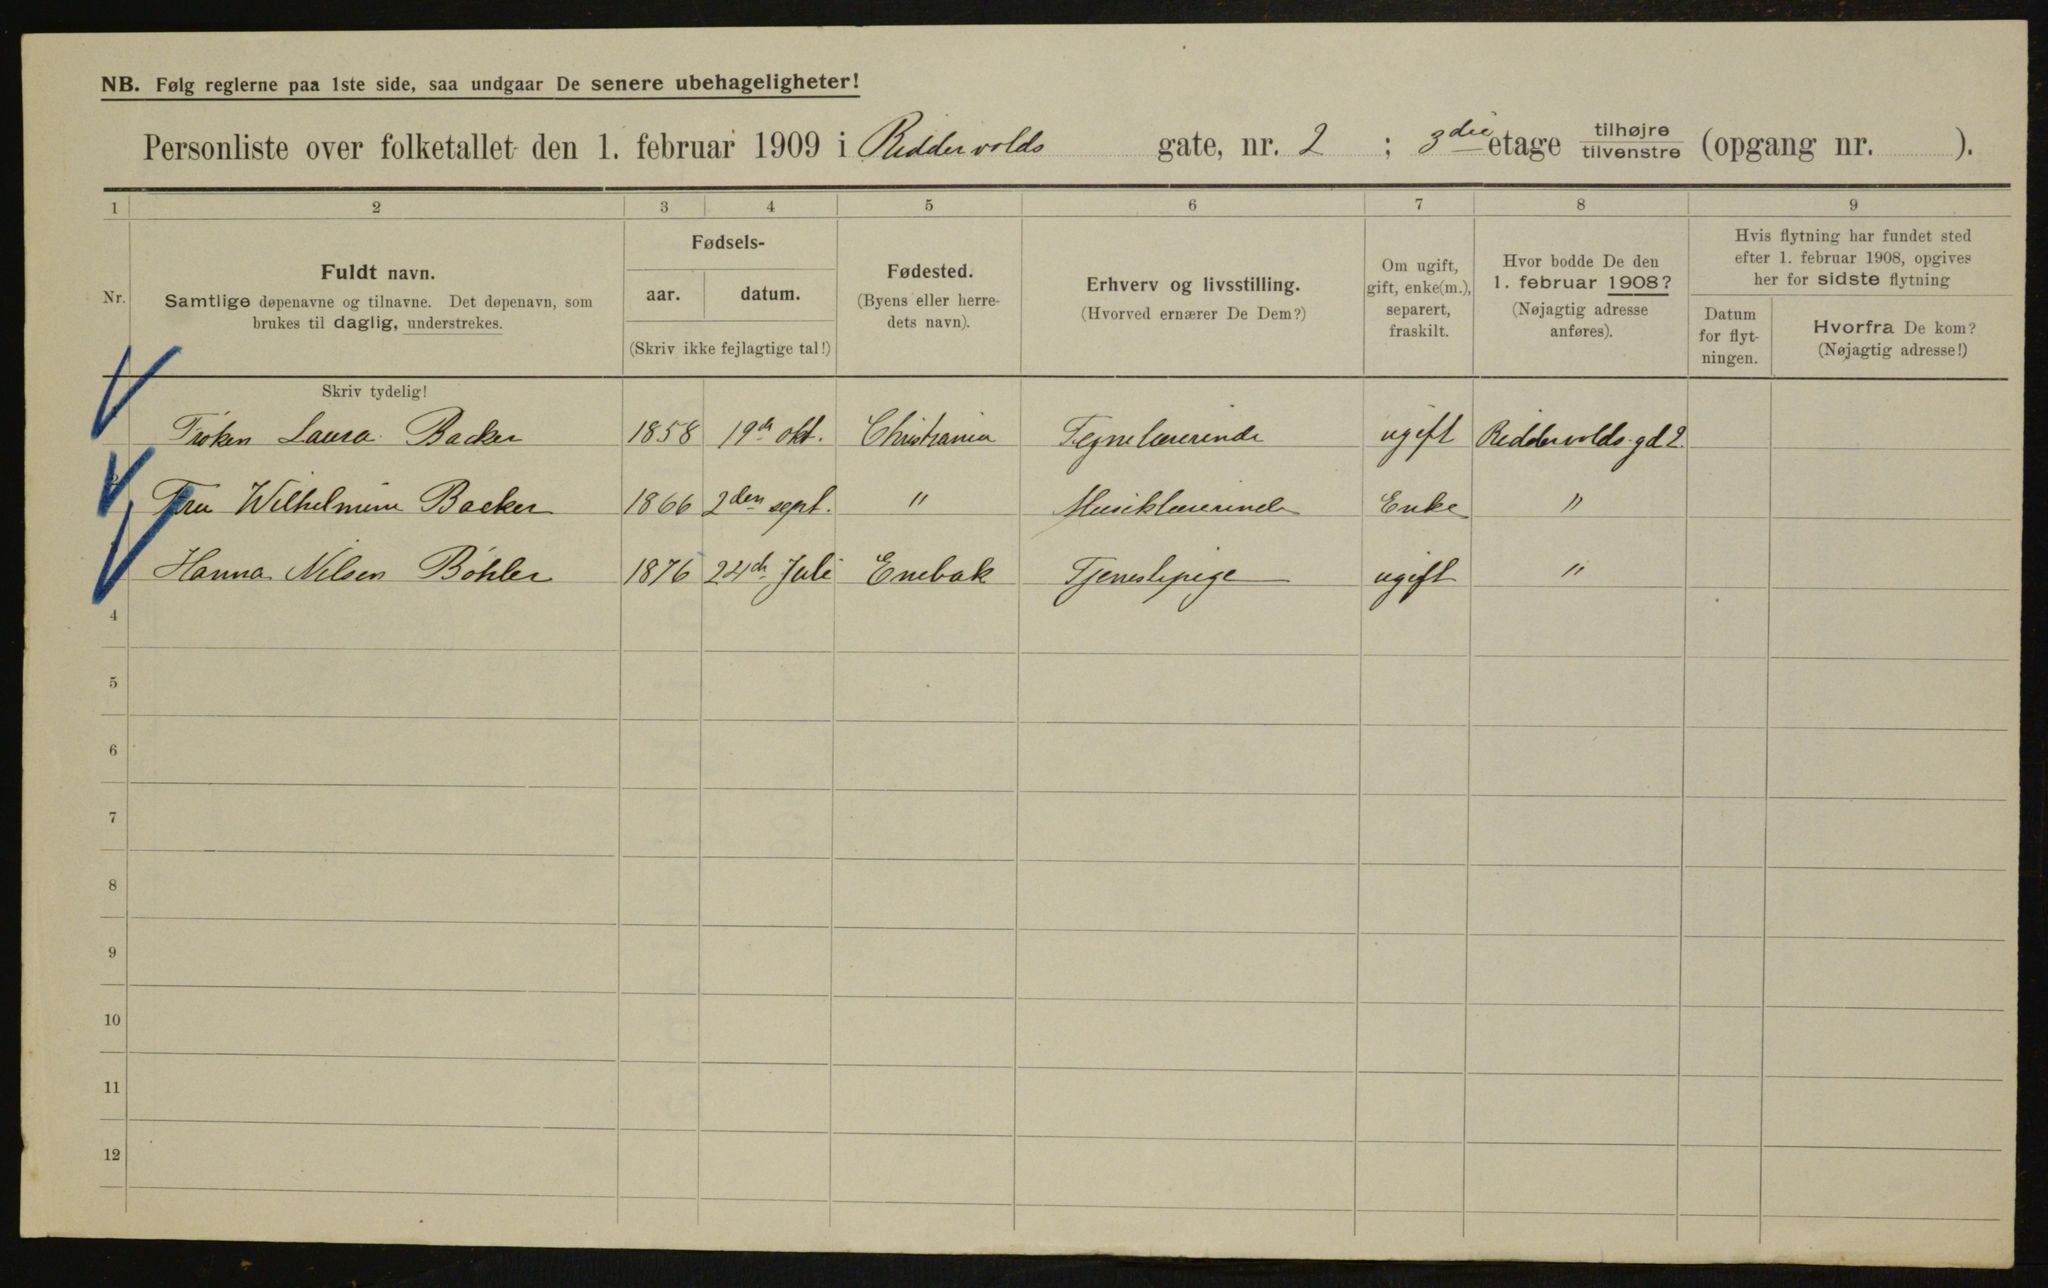 NB. Følg reglerne paa 1ste side, saa undgaar De senere ubehageligheter!
Personliste over folketallet den 1. februar 1909 i Riddervolds gate, nr. 2 ; 3die etage tilhøjre tilvenstre (opgang nr. ).
1 2 3 4 5 6 7 8 9
Nr.
Fuldt navn.
Samtlige døpenavne og tilnavne. Det døpenavn, som
brukes til daglig, understrekes.
Fødsels-
aar. datum.
(Skriv ikke fejlagtige tal!)
Fødested.
(Byens eller herre-
dets navn).
Erhverv og livsstilling.
(Hvorved ernærer De Dem?)
Om ugift,
gift, enke(m.),
separert,
fraskilt.
Hvor bodde De den
1. februar 1908?
(Nøjagtig adresse
anføres).
Hvis flytning har fundet sted
efter 1. februar 1908, opgives
her for sidste flytning
Datum
for flyt-
ningen.
Hvorfra De kom?
(Nøjagtig adresse!)
Skriv tydelig!
Frøken Laura Backer 1858 19de okt. Christiania Tegnelærerinde ugift Riddervolds gd 2.
Fru Wilhelmine Backer 1866 2den sept. " Musiklærerinde Enke "
Hanna Nilsen Bøhler 1876 24de Juli Enebak Tjenestepige ugift "
4
5
6
7
8
9
10
11
12